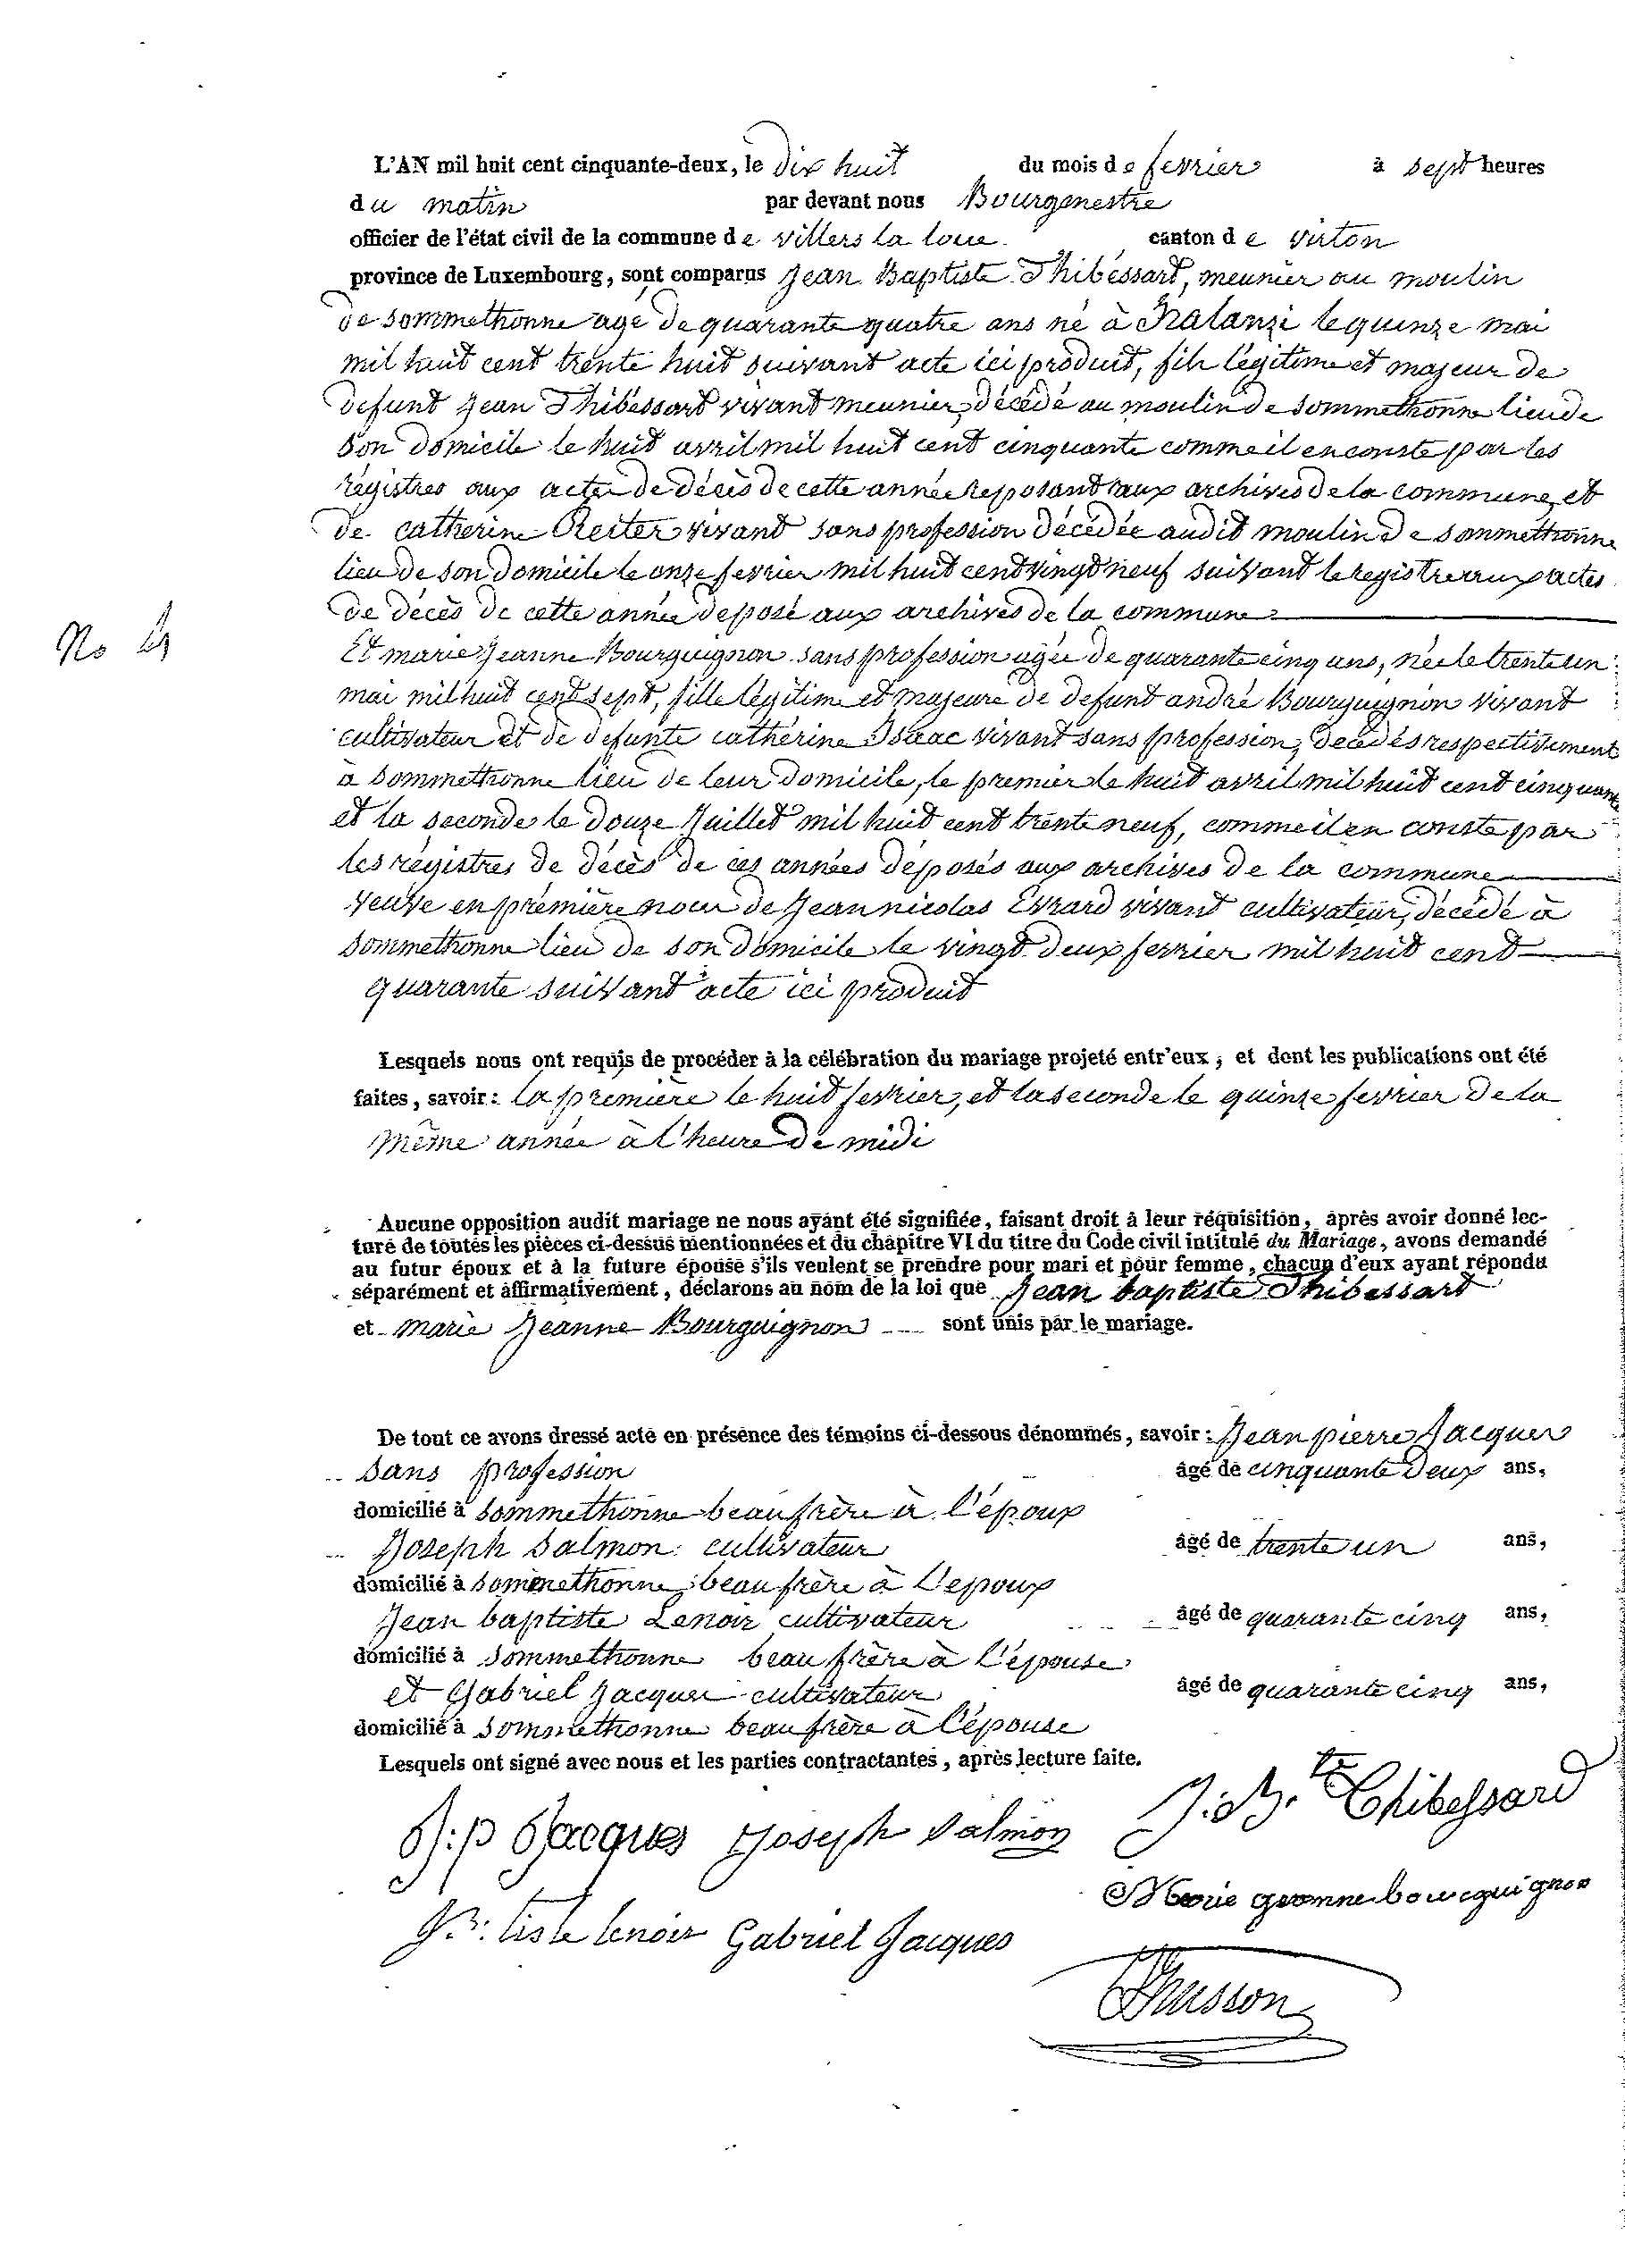 L'AN mil huit cent cinquante-deux, le dix huit du mois de fevrier à sept heures
du matin par devant nous Bourgmestre
officier de l'état civil de la commune de villers la loue canton de virton
province de Luxembourg, sont comparus Jean Baptiste Thibéssart, meunier au moulin
de sommethonne agé de quarante quatre ans né à halanzi le quinze mai
mil huit cent trente huit suivant acte ici produit, fils légitime et majeur de
defunt Jean Thibéssart vivant meunier, décédé au moulin de sommethonne lieu de
son domicile le huit avril mil huit cent cinquante comme il en conste par les
régistres aux actes de décès de cette année reposant aux archives de la commune, et
de catherine Reiter vivant sans profession décédée audit moulin de sommethonne
lieu de son domicile le onze fevrier mil huit cent vingt neuf suivant le registre aux actes
de décès de cette année deposé aux archives de la commune
No
Et marie Jeanne Bourguignon sans profession agée de quarante cinq ans, née le trente un
mai mil huit cent sept, fille légitime et majeure de defunt andré Bourguignon vivant
cultivateur et de defunte cathérine Isaac vivant sans profession, decédés respectivement
à sommethonne lieu de leur domicile, le premier le huit avril mil huit cent cinquante
et la seconde le douze Juillet mil huit cent trente neuf, comme il en conste par
les régistres de décès de ces années déposés aux archives de la commune
veuve en première noce de Jean nicolas Evrard vivant cultivateur, décédé à
sommethonne lieu de son domicile le vingt deux fevrier mil huit cent
quarante suivant acte ici produit
Lesquels nous ont requis de procéder à la célébration du mariage projeté entr'eux, et dont les publications ont été
faites, savoir : la première le huit fevrier, et la seconde le quinze fevrier de la
même année à l'heure de midi
Aucune opposition audit mariage ne nous ayant été signifiée, faisant droit à leur réquisition, après avoir donné lec-
ture de toutes les pièces ci-dessus mentionnées et du chapitre VI du titre du Code civil intitulé du Mariage, avons demandé
au futur époux et à la future épouse s'ils veulent se prendre pour mari et pour femme, chacun d'eux ayant répondu
séparément et affirmativement, déclarons au nom de la loi que Jean baptiste Thibessart
et marie Jeanne Bourguignon sont unis par le mariage.
De tout ce avons dressé acte en présence des témoins ci-dessous dénommés, savoir : Jean pierre Jacques
sans profession âgé de cinquante deux ans,
domicilié à sommethonne beau frère à l'époux
Joseph Salmon cultivateur âgé de trente un ans,
domicilié à sommethonne beau frère à l'epoux
Jean baptiste Lenoir cultivateur âgé de quarante cinq ans,
domicilié à sommethonne beau frère à l'épouse
et Gabriel Jacques cultivateur âgé de quarante cinq ans,
domicilié à sommethonne beau frère à l'épouse
Lesquels ont signé avec nous et les parties contractantes, après lecture faite.
J:p Jacques Joseph Salmon J.B.te Thibessard
Marie jeanne bourguignon
JB:tiste lenoir Gabriel Jacques
Husson